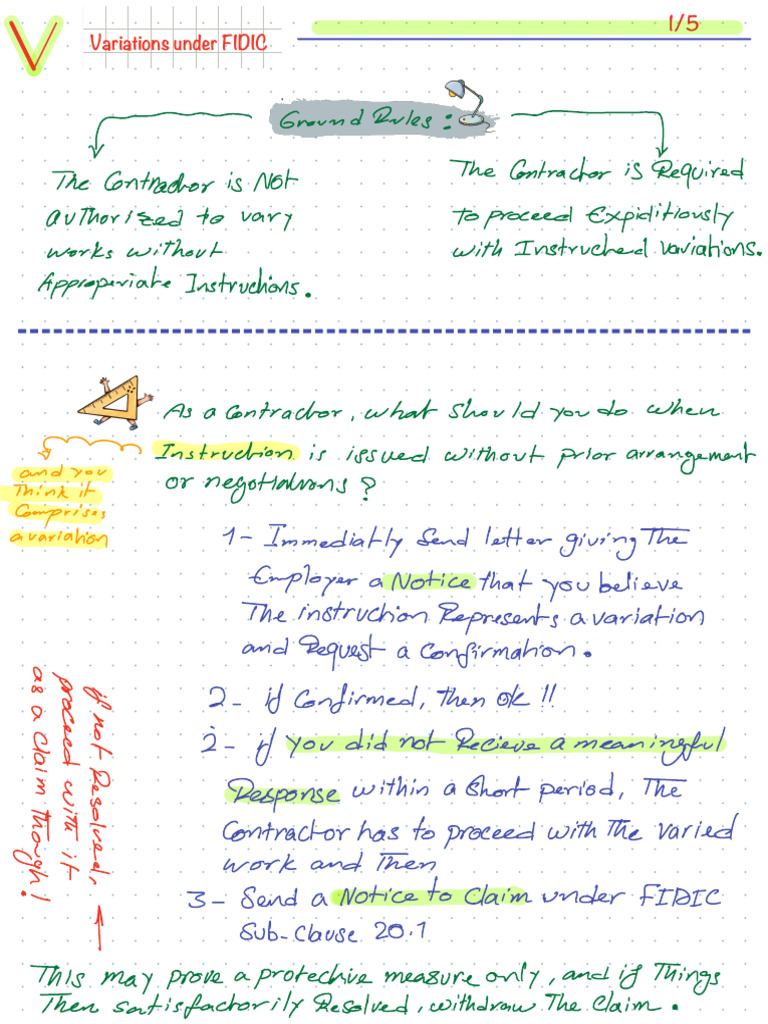 V
Variations under FIDIC
1/5
Ground Rules:
The Contractor is Not
authorized to vary
works without
Appropriate Instructions.
The Contractor is Required
to proceed Expiditiously
with Instructed Variations.
As a Contractor, what should you do when
Instruction is issued without prior arrangement
or negotiations?
and you
Think it
Comprises
a variation
1- Immediatly Send letter giving The
Employer a Notice that you believe
The instruction Represents a variation
and Request a Confirmation.
2- if Confirmed, Then ok!!
2- if you did not Recieve a meaningful
Response within a Short period, The
Contractor has to proceed with The varied
work and Then
3- Send a Notice to Claim under FIDIC
Sub-Clause 20.1
if not Resolved,
proceed with it
as a Claim though!
This may prove a protective measure only, and if Things
Then satisfactorily Resolved, withdraw The Claim.